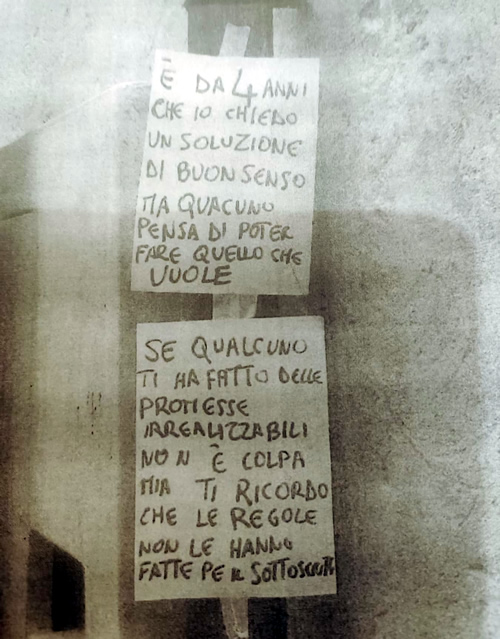 È DA 4 ANNI
CHE IO CHIEDO
UN SOLUZIONE
DI BUON SENSO
MA QUACUNO
PENSA DI POTER
FARE QUELLO CHE
VUOLE
SE QUALCUNO
TI HA FATTO DELLE
PROMESSE
IRREALIZZABILI
NON È COLPA
MIA TI RICORDO
CHE LE REGOLE
NON LE HANNO
FATTE PE IL